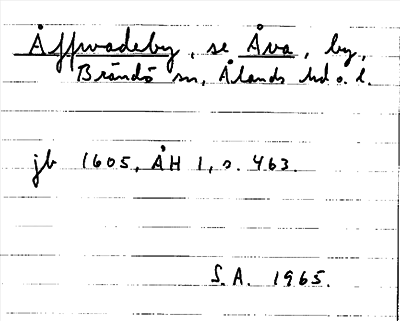 Åffwadeby, se Åva, by,
Brändö sn, Ålands hd o. l.
jb 1605, ÅH 1, s. 463.
S.A. 1965.